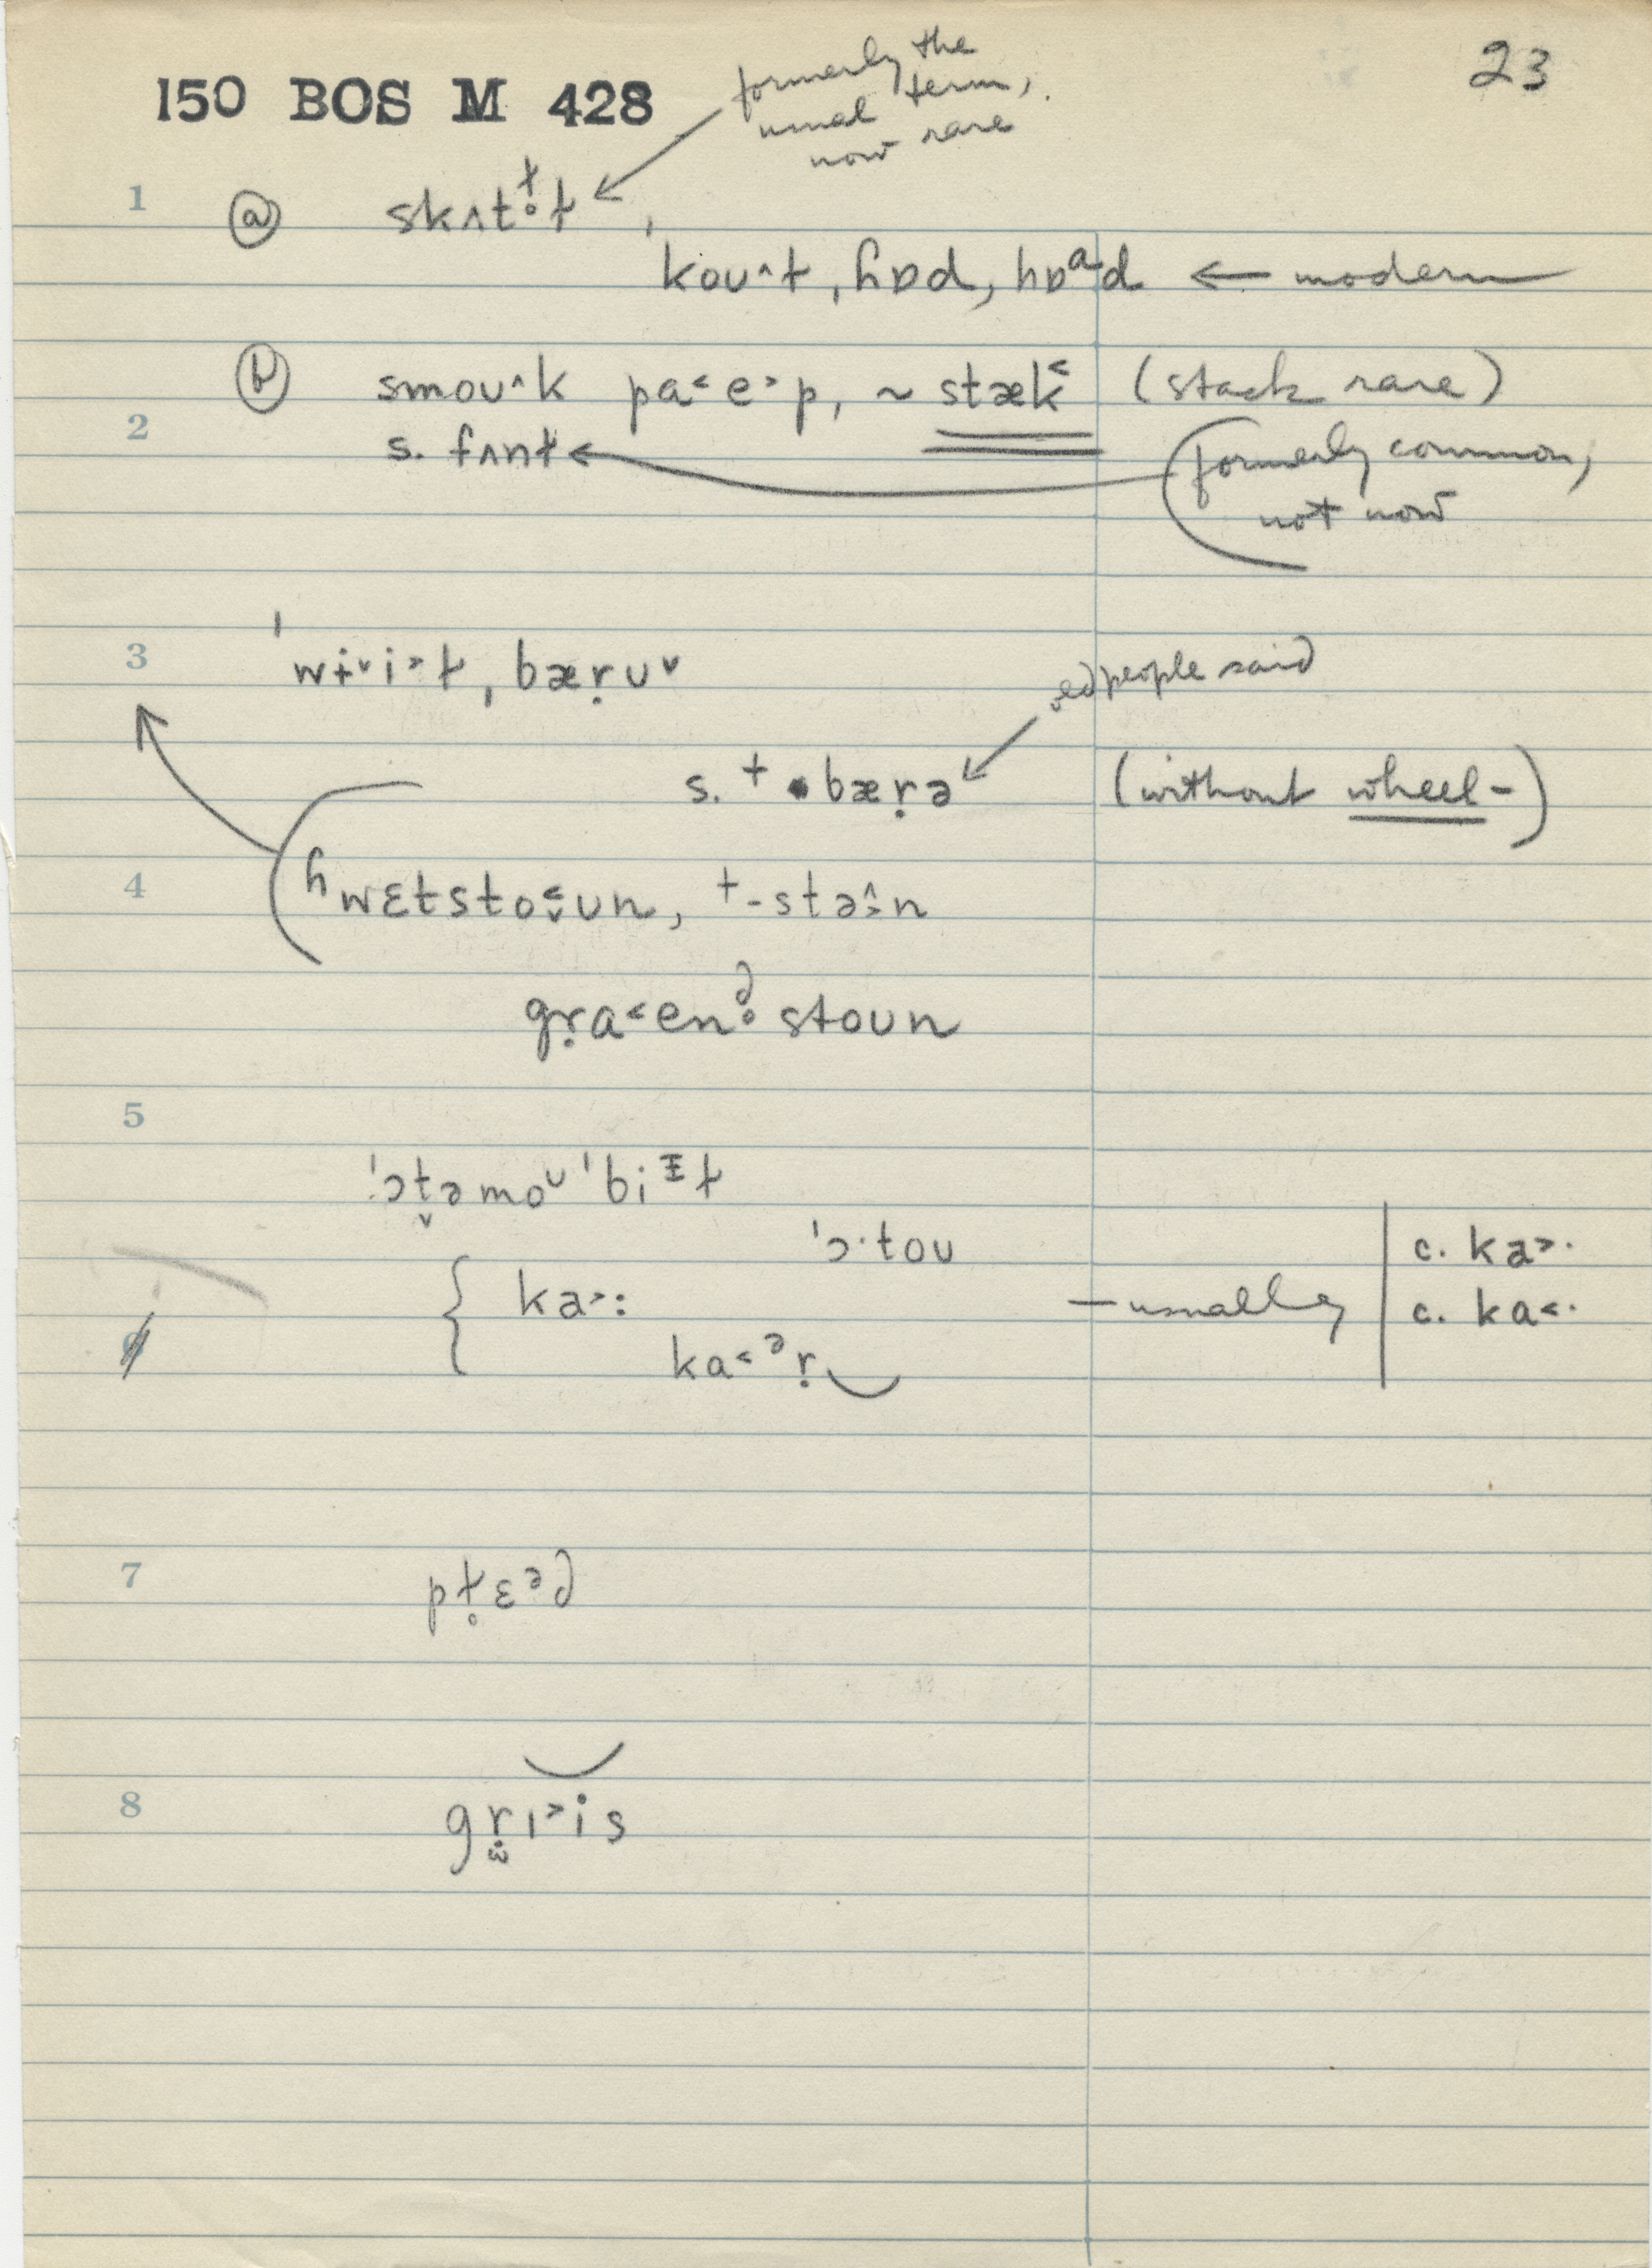 150 BOS M 428
23
formerly the
usual term,
now rare
1 ⓐ skʌtɫ̥ɫ ,
koʊ˄ɫ, ɦɒd, hɒᵃd ← modern
ⓑ smoʊ˄k pa˂e˃p, ~ stæk˂ (stack rare)
2 s. fʌnɫ ← (formerly common,
not now
3 ˈwɨ˅i˃ɫ, bæṛʊ˅
people said
s. † bæṛə (without wheel-)
4 ʱwɛtsto˂˅ʊn, †-stɵ˄˃n
gṛa˂en̥ᵈ stoʊn
5
ˈɔt̬əmoᶷˈbiᶧɫ
ˈɔ·toʊ
{ ka˃: — usually | c. ka˃·
6 ka˂ᵊṛ‿ | c. ka˂·
7 pɫ̥ɛᵊd
8 gṛɪ˃is